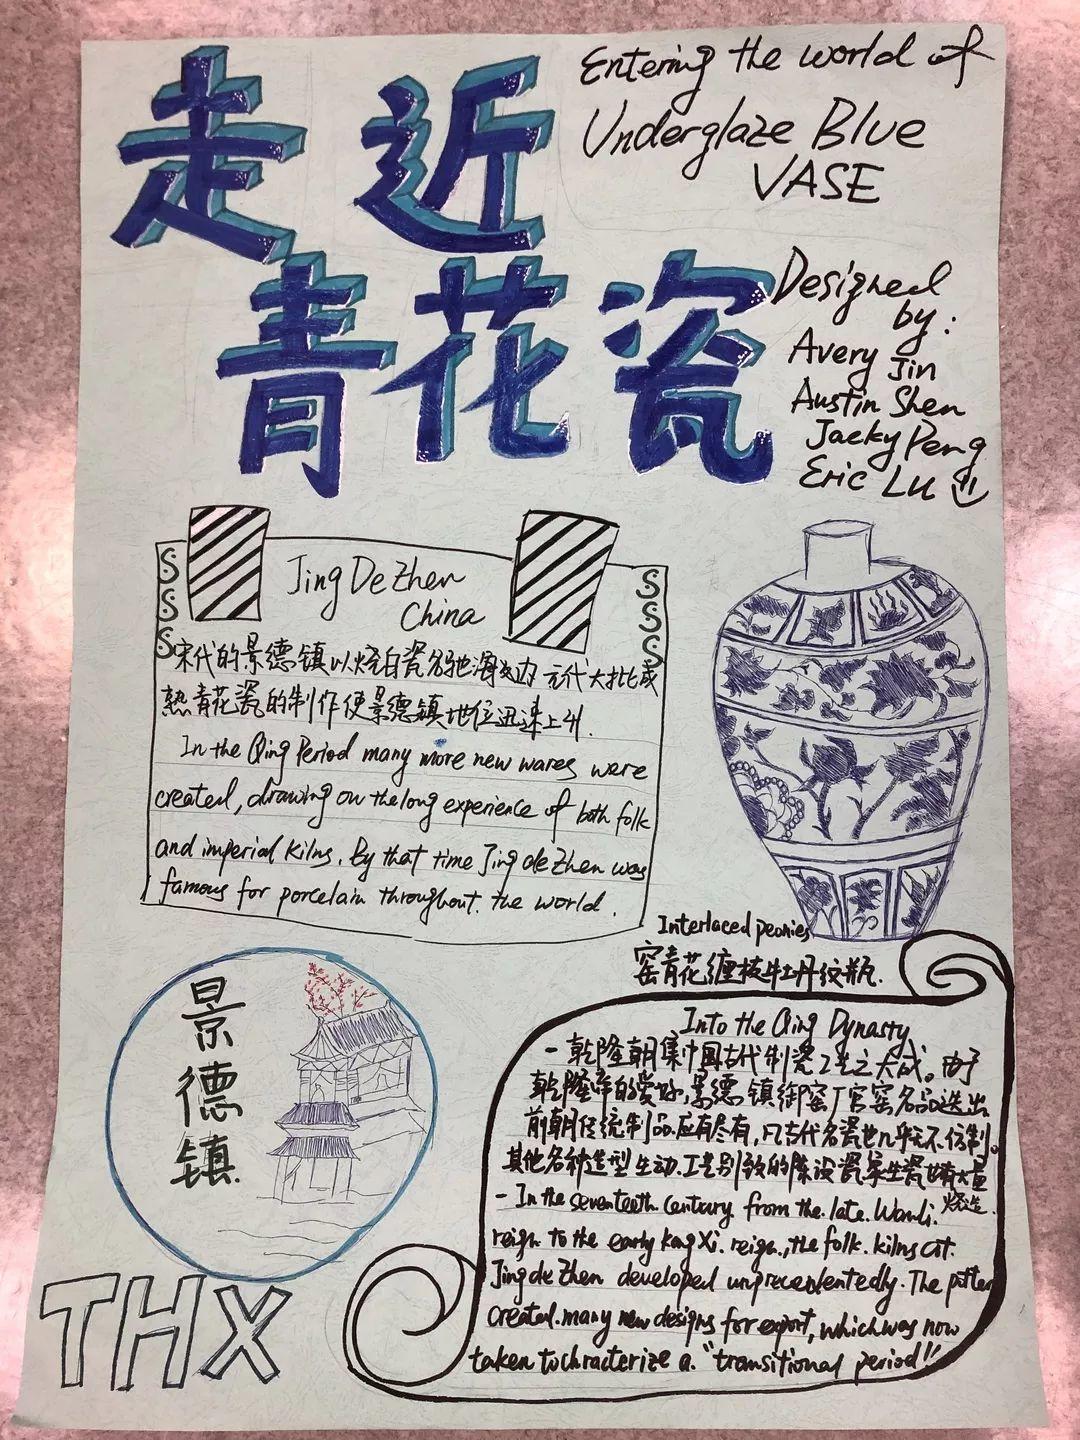 走近
青花瓷
Entering the world of
Underglaze Blue
VASE
Designed
by:
Avery Jin
Austin Shen
Jacky Peng
Eric Lu
Jing De Zhen
China
宋代的景德镇以烧白瓷名驰海内 元代大批成
熟青花瓷的制作使景德镇地位迅速上升.
In the Qing Period many more new wares were
created, drawing on the long experience of both folk
and imperial kilns. By that time Jing de Zhen was
famous for porcelain throughout. the world.
Interlaced peonies
窑青花缠枝牡丹纹瓶.
景德镇
Into the Qing Dynasty
- 乾隆朝集中国古代制瓷工艺之大成。由于
乾隆帝的爱好,景德镇御窑厂官窑名品迭出
前朝传统制品应有尽有,凡古代名瓷也几乎无不仿制。
其他各种造型生动.工艺别致的陈设瓷象生瓷也有大量
烧造.
- In the seventeeth century from the. late. Wanli.
reign to the early kang Xi. reign, the folk. kilns at.
Jing de Zhen developed unprecedentedly. The potter
created. many new designs for export, which was now
taken to chracterize a. "transitional period"
THX